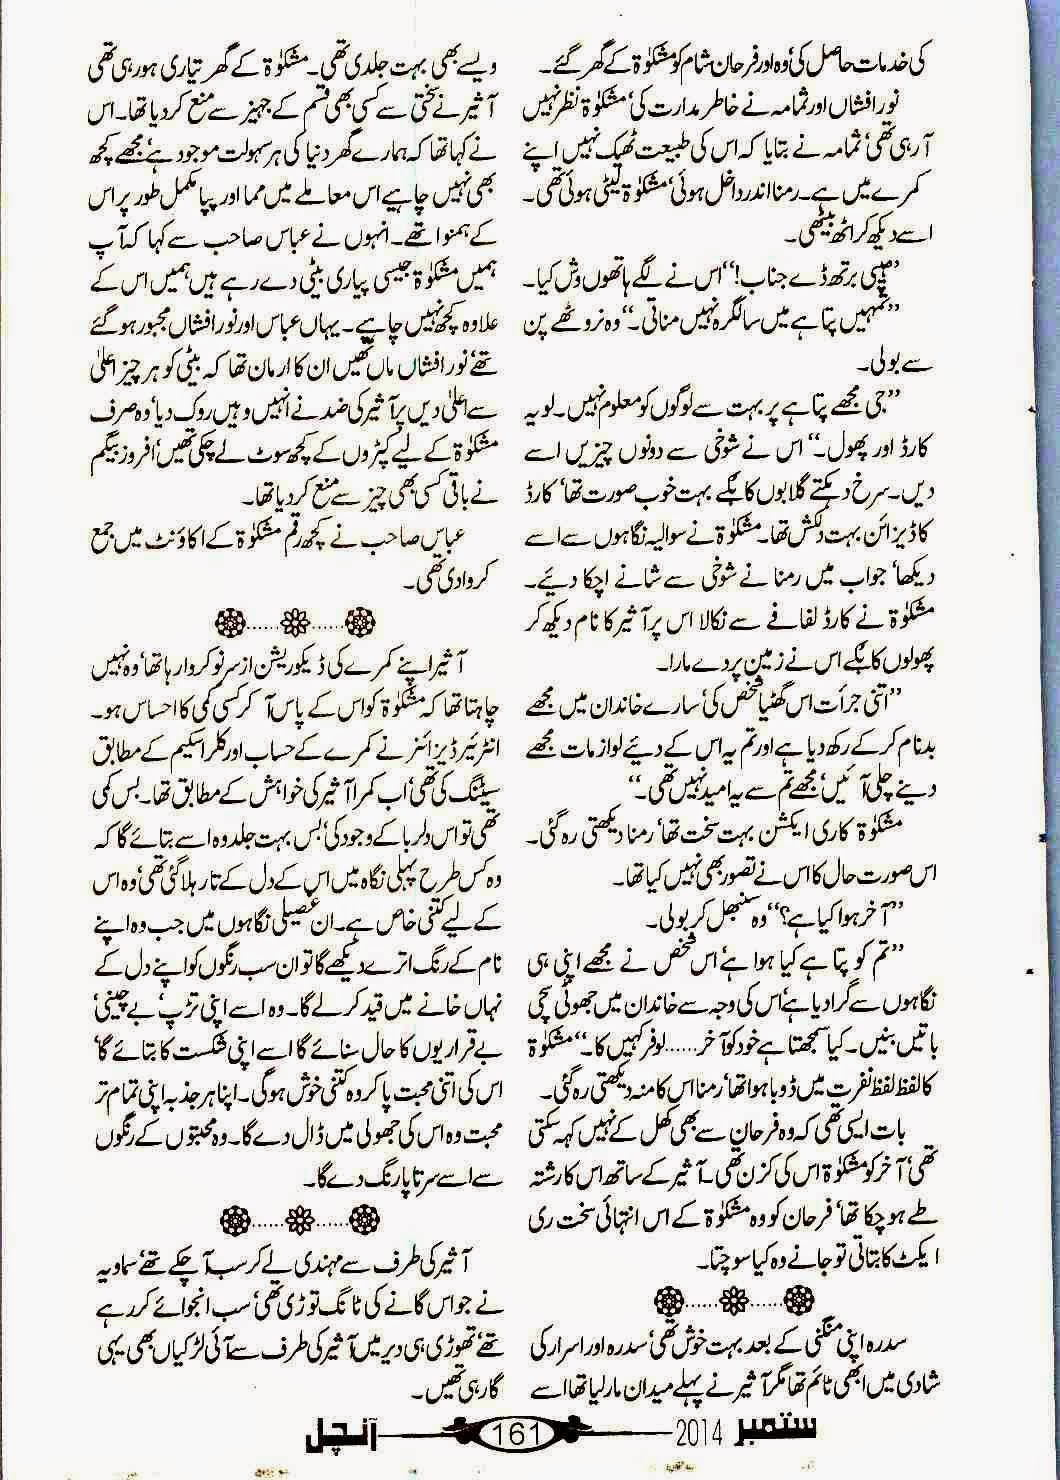 کی خدمات حاصل کی‘ وہ اور فرحان شام کو مشکوٰۃ کے گھر گئے۔
نور افشاں اور ثمامہ نے خاطر مدارت کی‘ مشکوٰۃ نظر نہیں
آرہی تھی‘ ثمامہ نے بتایا کہ اس کی طبیعت ٹھیک نہیں اپنے
کمرے میں ہے۔ رمنا اندر داخل ہوئی‘ مشکوٰۃ لیٹی ہوئی تھی۔
اسے دیکھ کر اٹھ بیٹھی۔
”ہیپی برتھ ڈے جناب!“ اس نے لگے ہاتھوں وش کیا۔
”تمہیں پتا ہے میں سالگرہ نہیں مناتی۔“ وہ نروٹھے پن
سے بولی۔
”جی مجھے پتا ہے پر بہت سے لوگوں کو معلوم نہیں۔ لو یہ
کارڈ اور پھول۔“ اس نے شوخی سے دونوں چیزیں اسے
دیں۔ سرخ دہکتے گلابوں کا بکے بہت خوب صورت تھا‘ کارڈ
کا ڈیزائن بہت دلکش تھا۔ مشکوٰۃ نے سوالیہ نگاہوں سے اسے
دیکھا‘ جواب میں رمنا نے شوخی سے شانے اچکا دیئے۔
مشکوٰۃ نے کارڈ لفافے سے نکالا اس پر آشیر کا نام دیکھ کر
پھولوں کا بکے اس نے زمین پر دے مارا۔
”اتنی جرأت اس گھٹیا شخص کی‘ سارے خاندان میں مجھے
بدنام کرکے رکھ دیا ہے اور تم یہ اس کے دیئے لوازمات مجھے
دینے چلی آئیں‘ مجھے تم سے یہ امید نہیں تھی۔“
مشکوٰۃ کا ری ایکشن بہت سخت تھا‘ رمنا دیکھتی رہ گئی۔
اس صورت حال کا اس نے تصور بھی نہیں کیا تھا۔
”آخر ہوا کیا ہے؟“ وہ سنبھل کر بولی۔
”تم کو پتا ہے کیا ہوا ہے‘ اس شخص نے مجھے اپنی ہی
نگاہوں سے گرا دیا ہے‘ اس کی وجہ سے خاندان میں جھوٹی سچی
باتیں بنیں۔ کیا سمجھتا ہے خود کو آخر...... لوفر کہیں کا۔“ مشکوٰۃ
کا لفظ لفظ نفرت میں ڈوبا ہوا تھا‘ رمنا اس کا منہ دیکھتی رہ گئی۔
بات ایسی تھی کہ وہ فرحان سے بھی کھل کے نہیں کہہ سکتی
تھی‘ آخر کو مشکوٰۃ اس کی کزن تھی۔ آشیر کے ساتھ اس کا رشتہ
طے ہوچکا تھا‘ فرحان کو وہ مشکوٰۃ کے اس انتہائی سخت ری
ایکٹ کا بتاتی تو جانے وہ کیا سوچتا۔
......
سدرہ اپنی منگنی کے بعد بہت خوش تھی‘ سدرہ اور اسرار کی
شادی میں ابھی ٹائم تھا مگر آشیر نے پہلے میدان مار لیا تھا اسے
ویسے بھی بہت جلدی تھی۔ مشکوٰۃ کے گھر تیاری ہورہی تھی
آشیر نے سختی سے کسی بھی قسم کے جہیز سے منع کردیا تھا۔ اس
نے کہا تھا کہ ہمارے گھر دنیا کی ہر سہولت موجود ہے‘ مجھے کچھ
بھی نہیں چاہیے اس معاملے میں مما اور پپا مکمل طور پر اس
کے ہمنوا تھے۔ انہوں نے عباس صاحب سے کہا کہ آپ
ہمیں مشکوٰۃ جیسی پیاری بیٹی دے رہے ہیں ہمیں اس کے
علاوہ کچھ نہیں چاہیے۔ یہاں عباس اور نور افشاں مجبور ہوگئے
تھے‘ نور افشاں ماں تھیں ان کا ارمان تھا کہ بیٹی کو ہر چیز اعلیٰ
سے اعلیٰ دیں پر آشیر کی ضد نے انہیں وہیں روک دیا‘ وہ صرف
مشکوٰۃ کے لیے کپڑوں کے کچھ سوٹ لے چکی تھیں‘ افروز بیگم
نے باقی کسی بھی چیز سے منع کردیا تھا۔
عباس صاحب نے کچھ رقم مشکوٰۃ کے اکاؤنٹ میں جمع
کروا دی تھی۔
......
آشیر اپنے کمرے کی ڈیکوریشن ازسر نو کروا رہا تھا‘ وہ نہیں
چاہتا تھا کہ مشکوٰۃ کو اس کے پاس آ کر کسی کمی کا احساس ہو۔
انٹرئیر ڈیزائنر نے کمرے کے حساب اور کلر اسکیم کے مطابق
سیٹنگ کی تھی‘ اب کمرا آشیر کی خواہش کے مطابق تھا۔ بس کمی
تھی تو اس دلربا کے وجود کی‘ بس بہت جلد وہ اسے بتائے گا کہ
وہ کس طرح پہلی نگاہ میں اس کے دل کے تار ہلا گئی تھی‘ وہ اس
کے لیے کتنی خاص ہے۔ ان غصیلی نگاہوں میں جب وہ اپنے
نام کے رنگ اترے دیکھے گا تو ان سب رنگوں کو اپنے دل کے
نہاں خانے میں قید کرلے گا۔ وہ اسے اپنی تڑپ‘ بے چینی‘
بے قراریوں کا حال سنائے گا اسے اپنی شکست کا بتائے گا‘
اس کی اتنی محبت پا کر وہ کتنی خوش ہوگی۔ اپنا ہر جذبہ اپنی تمام تر
محبت وہ اس کی جھولی میں ڈال دے گا۔ وہ محبتوں کے رنگوں
سے اسے سر تا پا رنگ دے گا۔
......
آشیر کی طرف سے مہندی لے کر سب آچکے تھے‘ سماویہ
نے جو اس گانے کی ٹانگ توڑی تھی‘ سب انجوائے کررہے
تھے‘ تھوڑی ہی دیر میں آشیر کی طرف سے آئی لڑکیاں بھی یہی
گا رہی تھیں۔
ستمبر 2014 161 آنچل